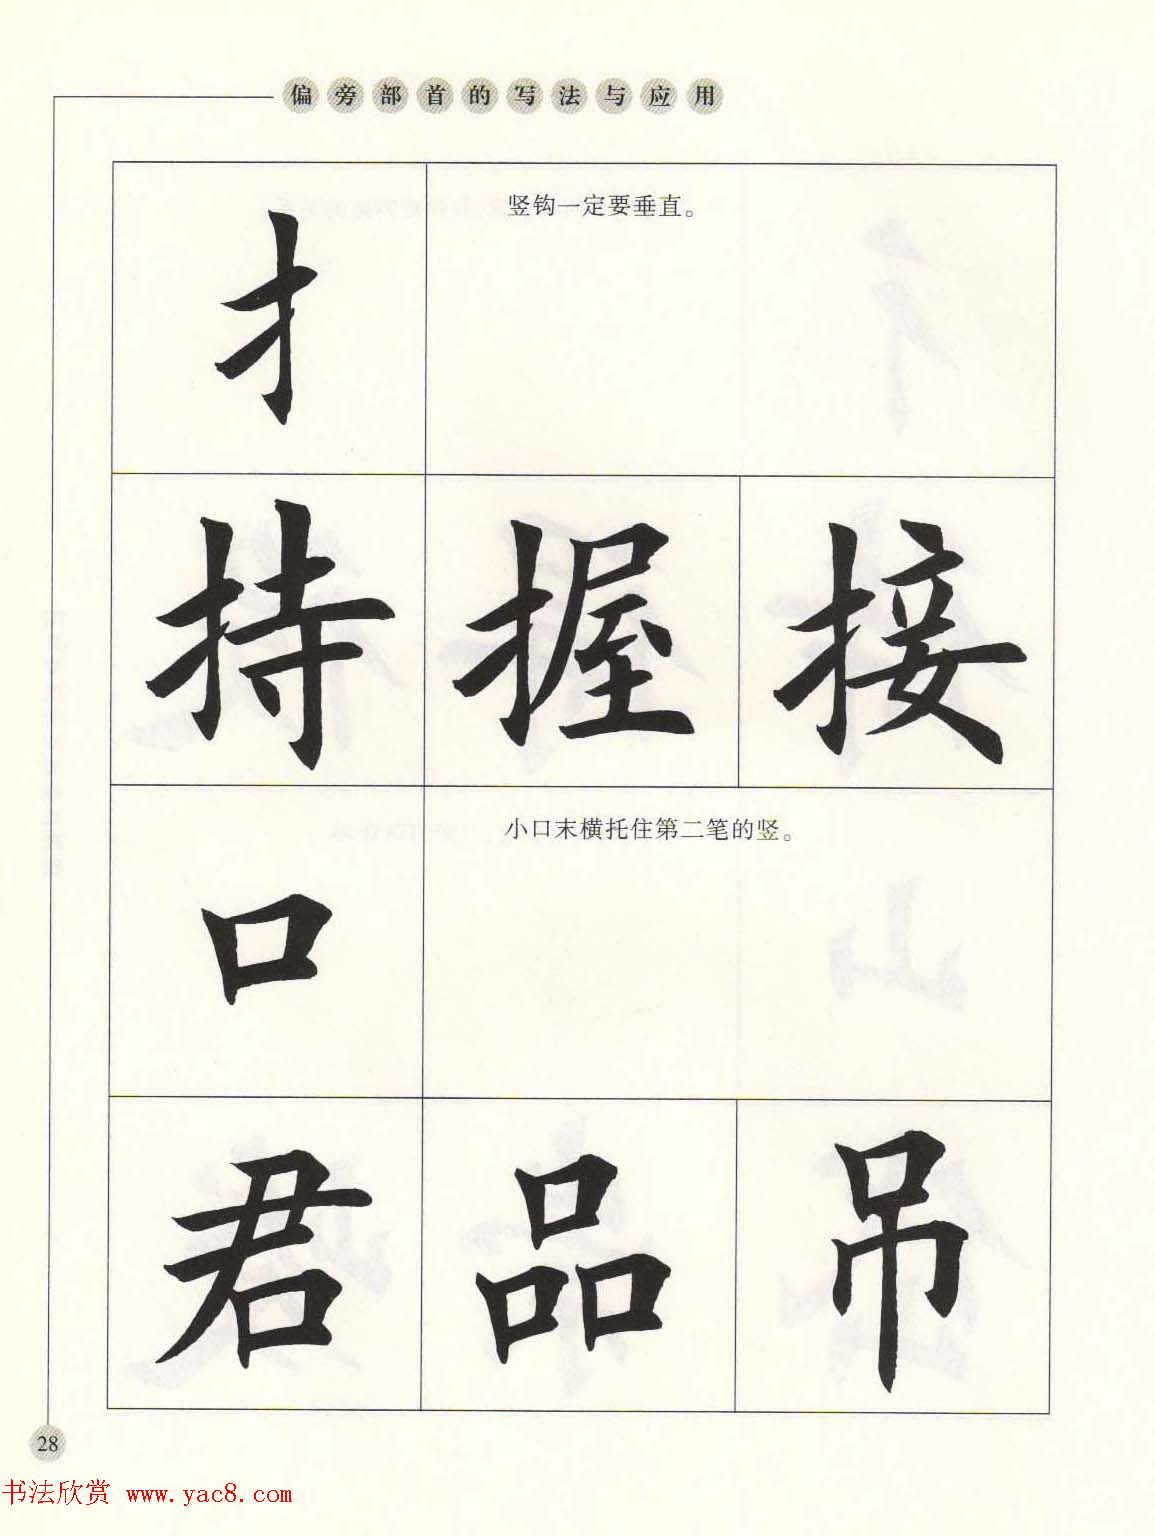 偏旁部首的写法与应用
扌
竖钩一定要垂直。
持 握 接
口
小口末横托住第二笔的竖。
君 品 吊
28
书法欣赏 www.yac8.com